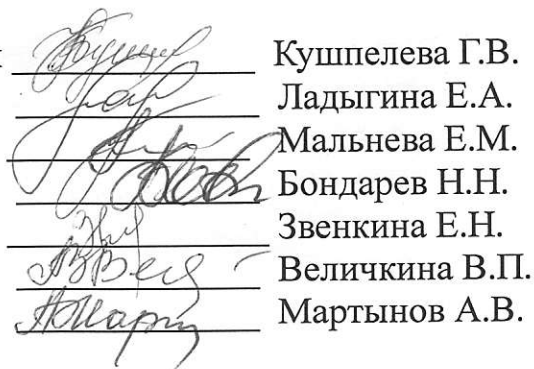 Кушпелева Г.В.
Ладыгина Е.А.
Мальнева Е.М.
Бондарев Н.Н.
Звенкина Е.Н.
Величкина В.П.
Мартынов А.В.